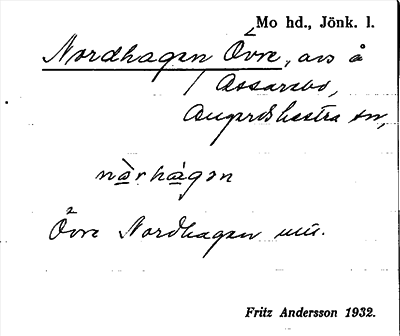 Mo hd., Jönk. l.
Nordhagen Övre, avs å
Assarebo,
Angerdshestra sn,
nòrhàgen
Övre Nordhagen
Fritz Andersson 1932.